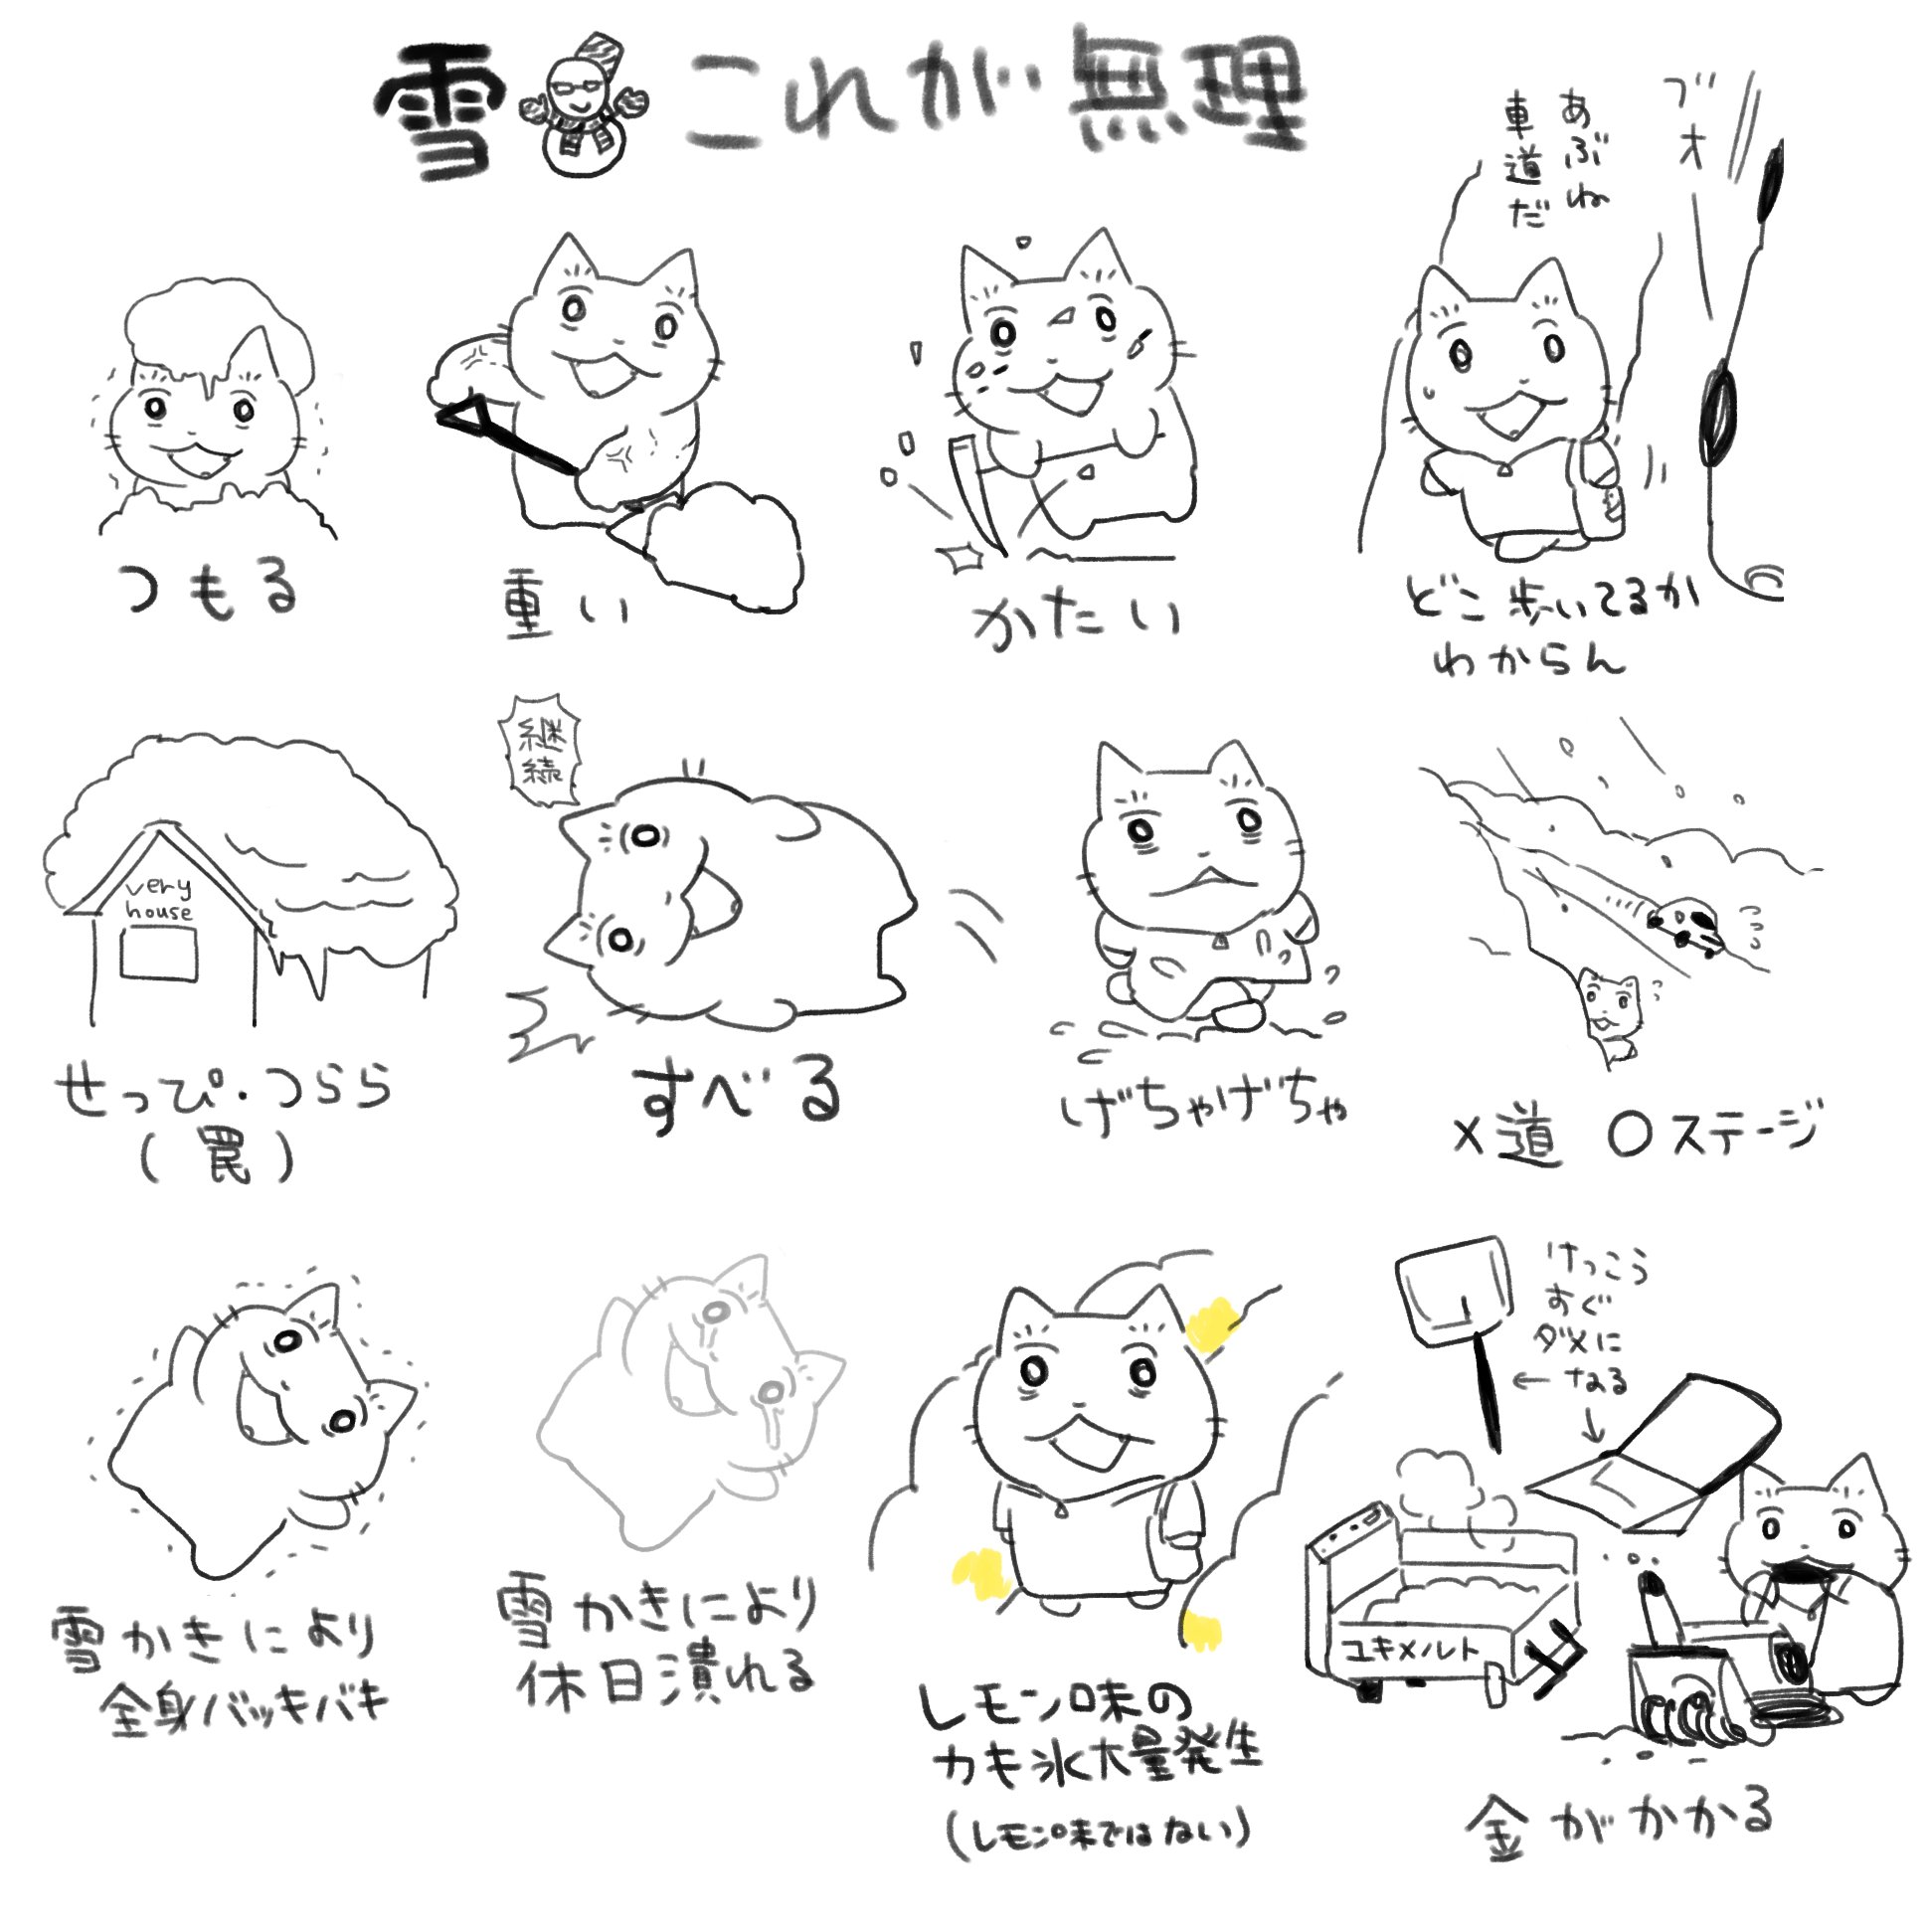 雪 これが無理
つもる
重い
かたい
ブオ
あぶね
車道だ
どこ歩いてるか
わからん
very
house
せっぴ・つらら
(罠)
継続
すべる
げちゃげちゃ
×道 ○ステージ
雪かきにより
全身バッキバキ
雪かきにより
休日潰れる
レモン味の
カキ氷大量発生
(レモン味ではない)
けっこう
すぐ
ダメに
← なる
↓
ユキメルト
金がかかる